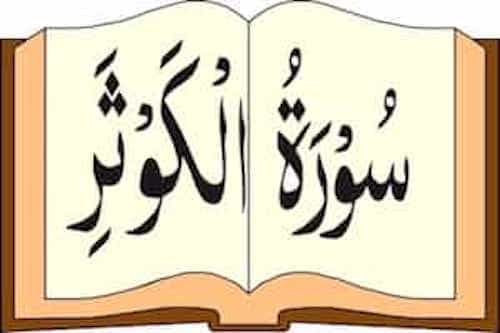 سُوْرَةُ الْكَوْثَرِ